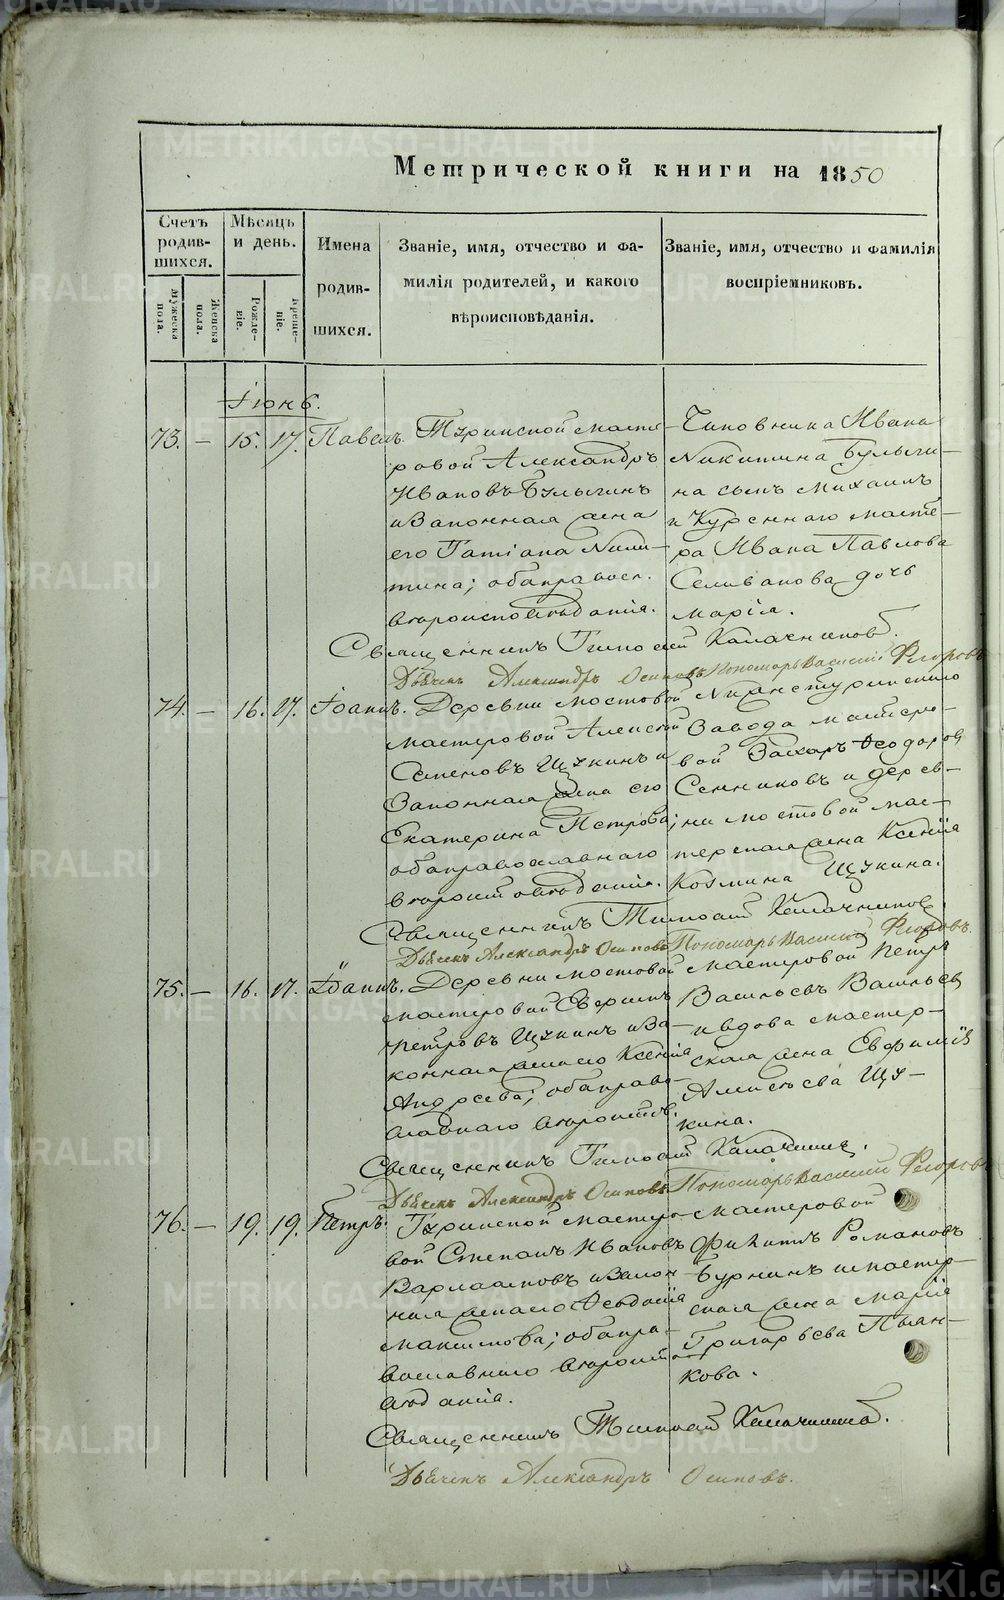 Метрической книги на 1850
Счетъ родившихся.
Мѣсяцъ и день.
Имена родившихся.
Званіе, имя, отчество и фамилія родителей, и какого вѣроисповѣданія.
Званіе, имя, отчество и фамилія воспріемниковъ.
Мужеска пола.
Женска пола.
Рожденіе.
Крещеніе.
Іюнь.
73. — 15. 17. Павелъ.
Туринской масте-
ровой Александръ
Ивановъ Булыгинъ
и законная жена
его Татіана Ники-
тина; оба правосл.
вѣроисповѣданія.
Чиновника Ивана
Никитина Булыги-
на сынъ Михаилъ
и Куреннаго масте-
ра Ивана Павлова
Селиванова дочь
Марія.
Священникъ Тимофей Калачниковъ.
Дьячекъ Александръ Осиповъ Пономарь Василий Флоровъ
74. — 16. 17. Іоаннъ.
Деревни Мостовой
мастеровой Алексей
Семеновъ Щукинъ и
законная жена его
Екатерина Петрова;
оба православнаго
вѣроисповѣданія.
Нижнетуринскаго
Завода мастеро-
вой Захаръ Ѳеодоровъ
Сенниковъ и дерев-
ни Мостовой мас-
терская жена Ксенія
Козмина Щукина.
Священникъ Тимофей Калачниковъ.
Дьячекъ Александръ Осиповъ Пономарь Василий Флоровъ.
75. — 16. 17. Іоаннъ.
Деревни Мостовой
мастеровой Ефремъ
Петровъ Щукинъ и за-
конная жена его Ксенія
Андреева; оба право-
славнаго вѣроиспов.
мастеровой Петръ
Васильевъ Васильев
и вдова мастер-
ская жена Евфимія
Алексѣева Щу-
кина.
Священникъ Тимофей Калачник.
Дьячекъ Александръ Осиповъ Пономарь Василий Флоровъ
76. — 19. 19. Петръ.
Туринской мастеро-
вой Степанъ Ивановъ
Варлаамовъ и закон-
ная жена его Ѳеодосія
Максимова; оба пра-
вославнаго вѣроиспо-
вѣданія.
мастеровой
Филипъ Романовъ
Бурнинъ и мастер-
ская жена Марія
Григорьева Пьян-
кова.
Священникъ Тимофей Калачников.
Дьячекъ Александръ Осиповъ.
METRIKI.GASO-URAL.RU